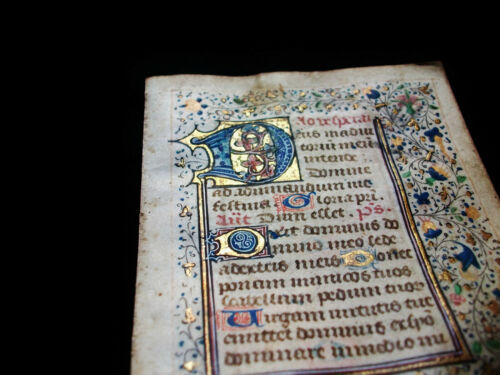 Ad vesperas
Deus in adiu
torium meū
intende
Domine
ad adiuvandum me
festina Gloria pri.
Añt Dum esset. ps
Dixit dominus do
mino meo sede
a dextris meis Donec
ponam inimicos tuos
scabellum pedum tuoꝝ
Virgam virtutis tue
emittet dominus ex syō
dominare in medio inı